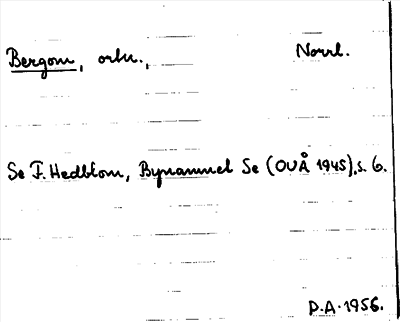 Bergom, ortn., Norrl.
Se F. Hedblom, Bynamnet Se (OUÅ 1945), s. 6.
P.A. 1956.